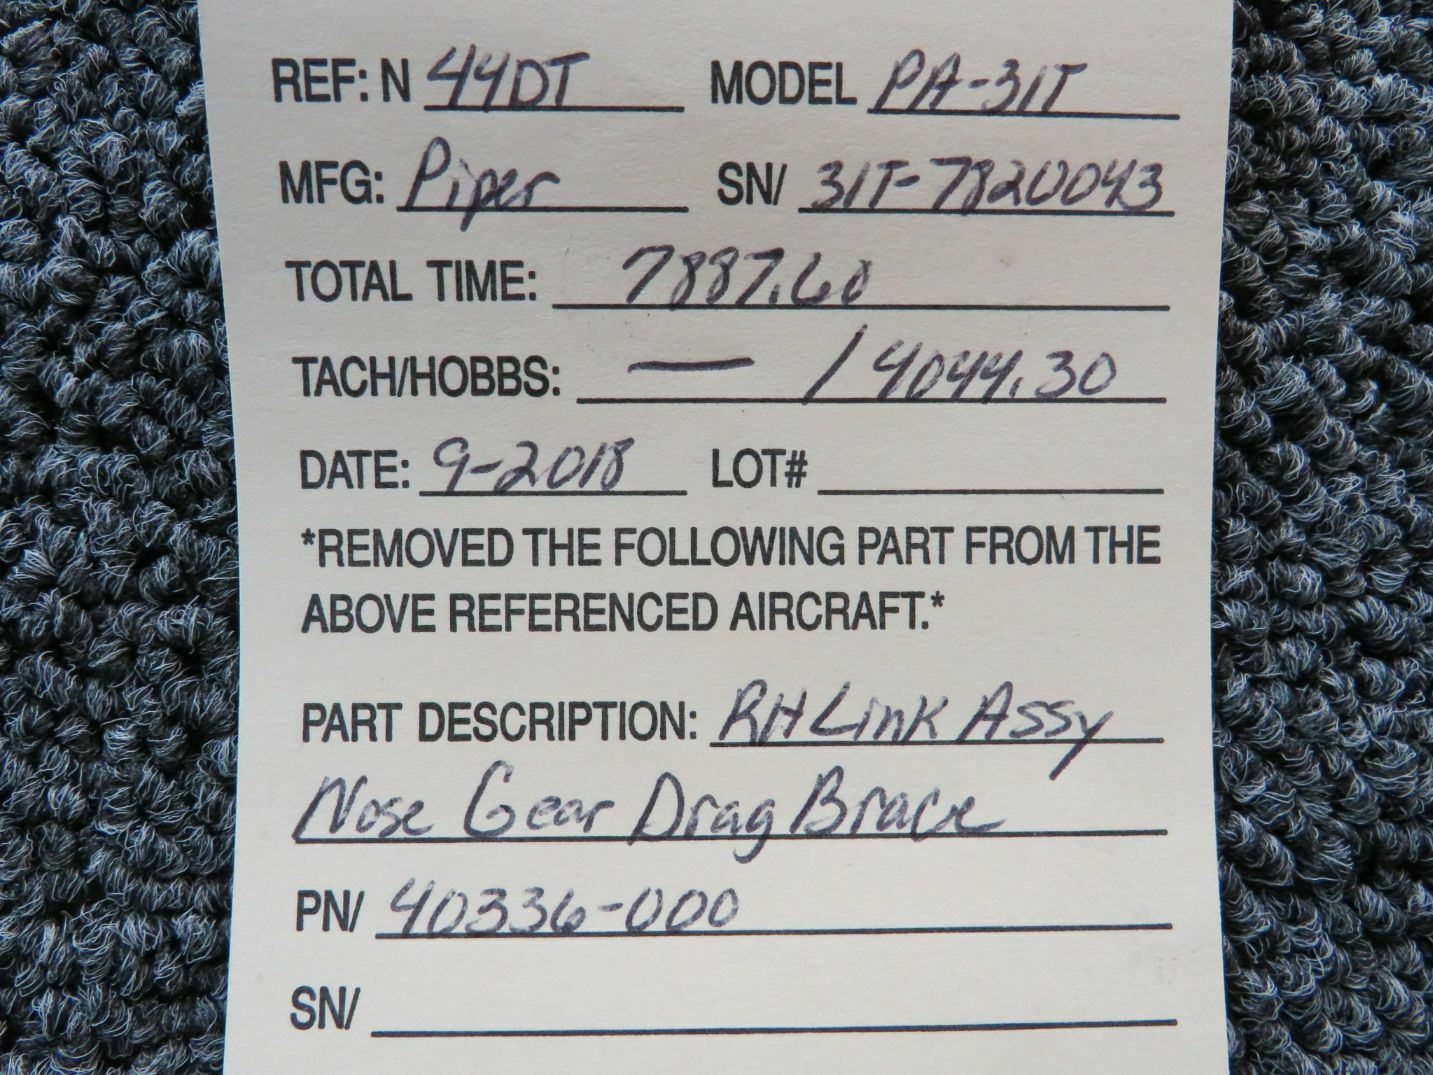 REF: N 44DT MODEL PA-31T
MFG: Piper SN/ 31T-7820043
TOTAL TIME: 7887.60
TACH/HOBBS: — / 4044.30
DATE: 9-2018 LOT#
*REMOVED THE FOLLOWING PART FROM THE
ABOVE REFERENCED AIRCRAFT.*
PART DESCRIPTION: RH Link Assy
Nose Gear Drag Brace
PN/ 40336-000
SN/